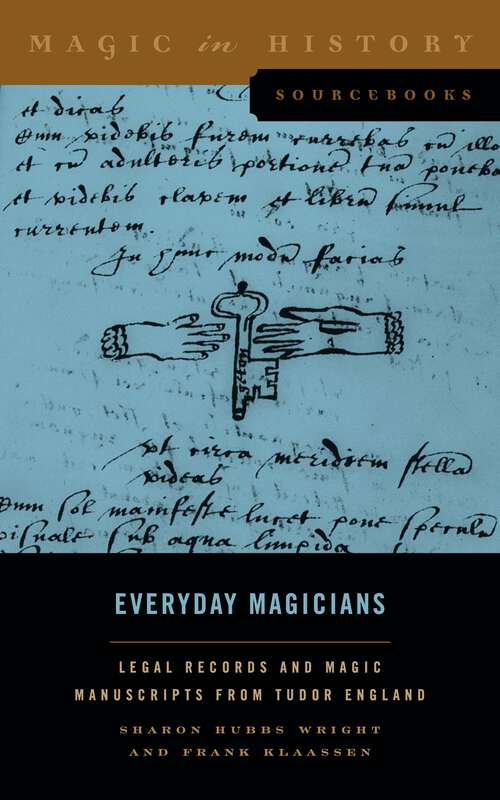 MAGIC in HISTORY
SOURCEBOOKS
et dicas
Cum videbis furem currebas cū illo
et cū adulteris portionē tuā poneba
et videbis clavem et librū simul
currentem.
In hunc modū facias
ut circa meridiem stellā
videas
Cum sol manifeste lucet pone speculū
visuale sub aqua limpida
EVERYDAY MAGICIANS
LEGAL RECORDS AND MAGIC
MANUSCRIPTS FROM TUDOR ENGLAND
SHARON HUBBS WRIGHT
AND FRANK KLAASSEN